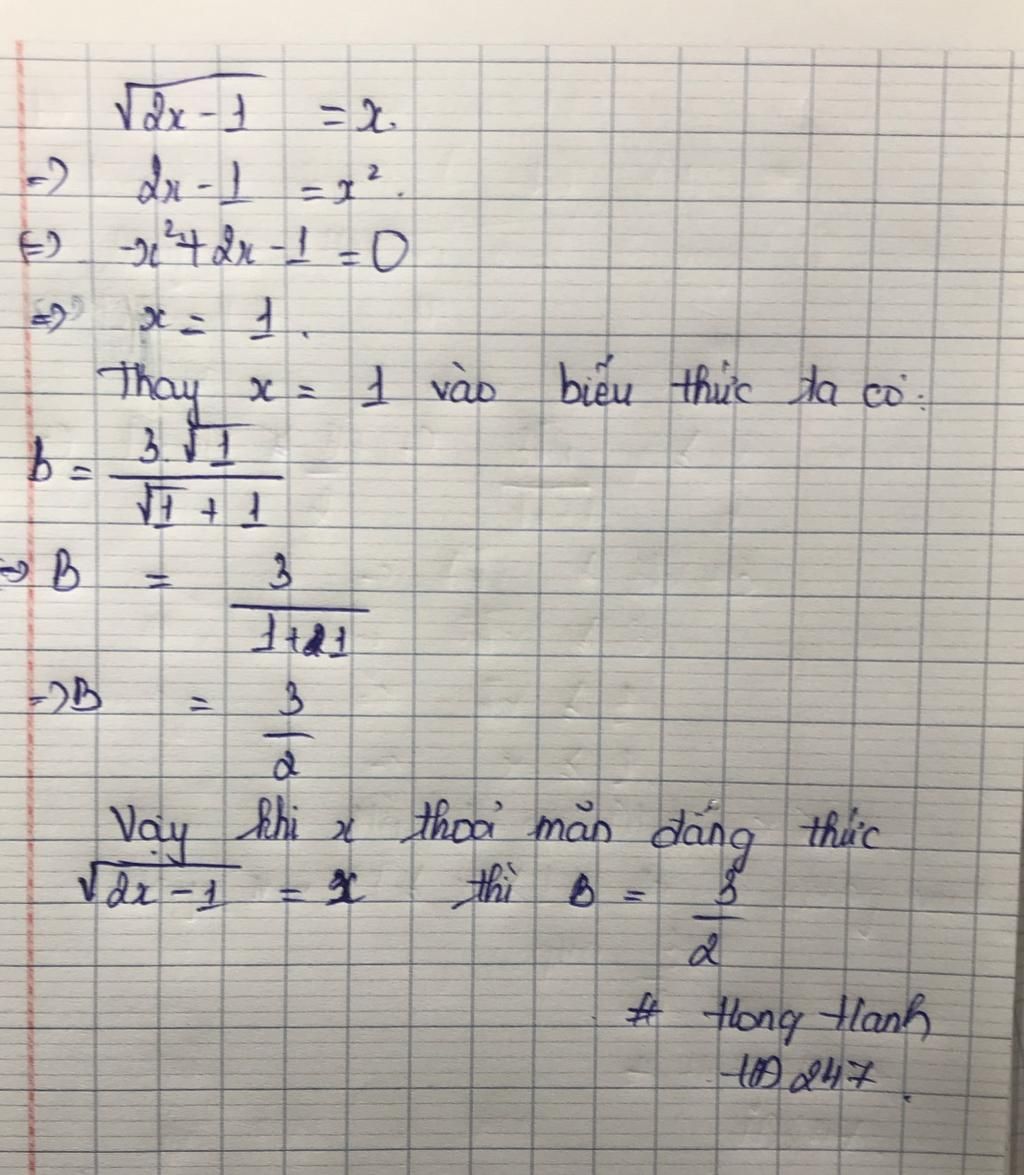 √2x-1 = x.
=> 2x-1 = x².
<=> -x²+2x-1 = 0
=> x = 1.
Thay x = 1 vào biểu thức ta có:
b = 3.√1 / √1 + 1
=> B = 3 / 1+1
=> B = 3 / 2
Vậy khi x thoả mãn đẳng thức
√2x-1 = x thì B = 3 / 2
# Hong Hanh
247.